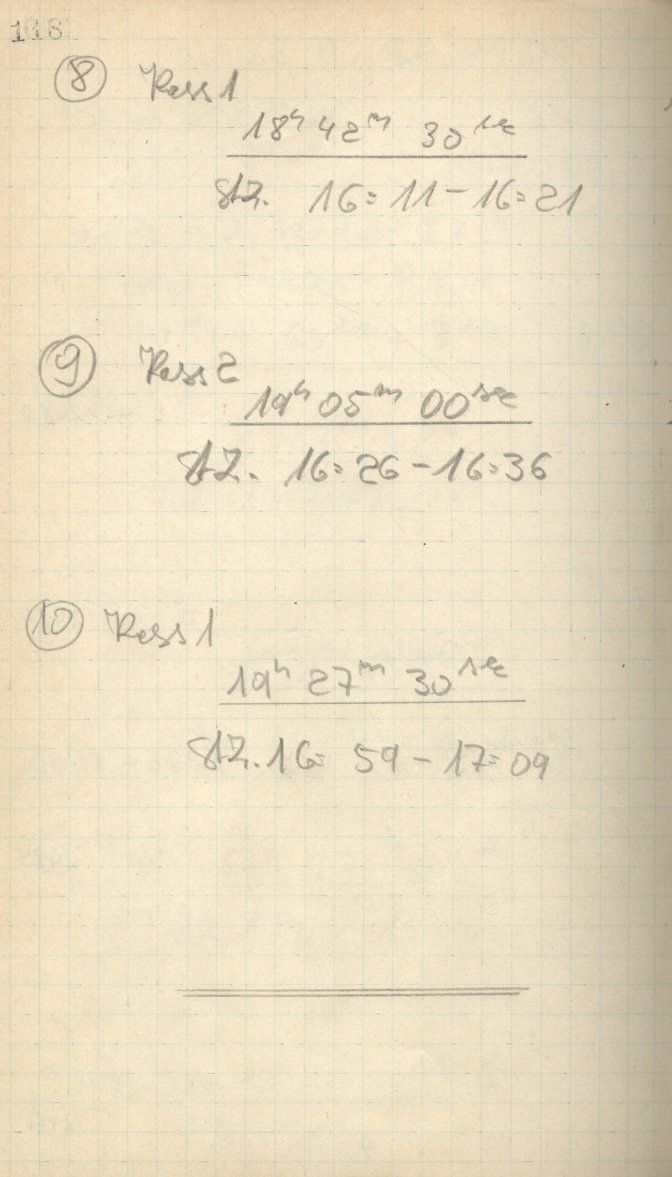 118
8 Kass 1
18h 42m 30sec
StZ. 16=11 - 16=21
9 Kass 2
19h 05m 00sec
StZ. 16=26 - 16=36
10 Kass 1
19h 27m 30sec
StZ. 16= 59 - 17=09